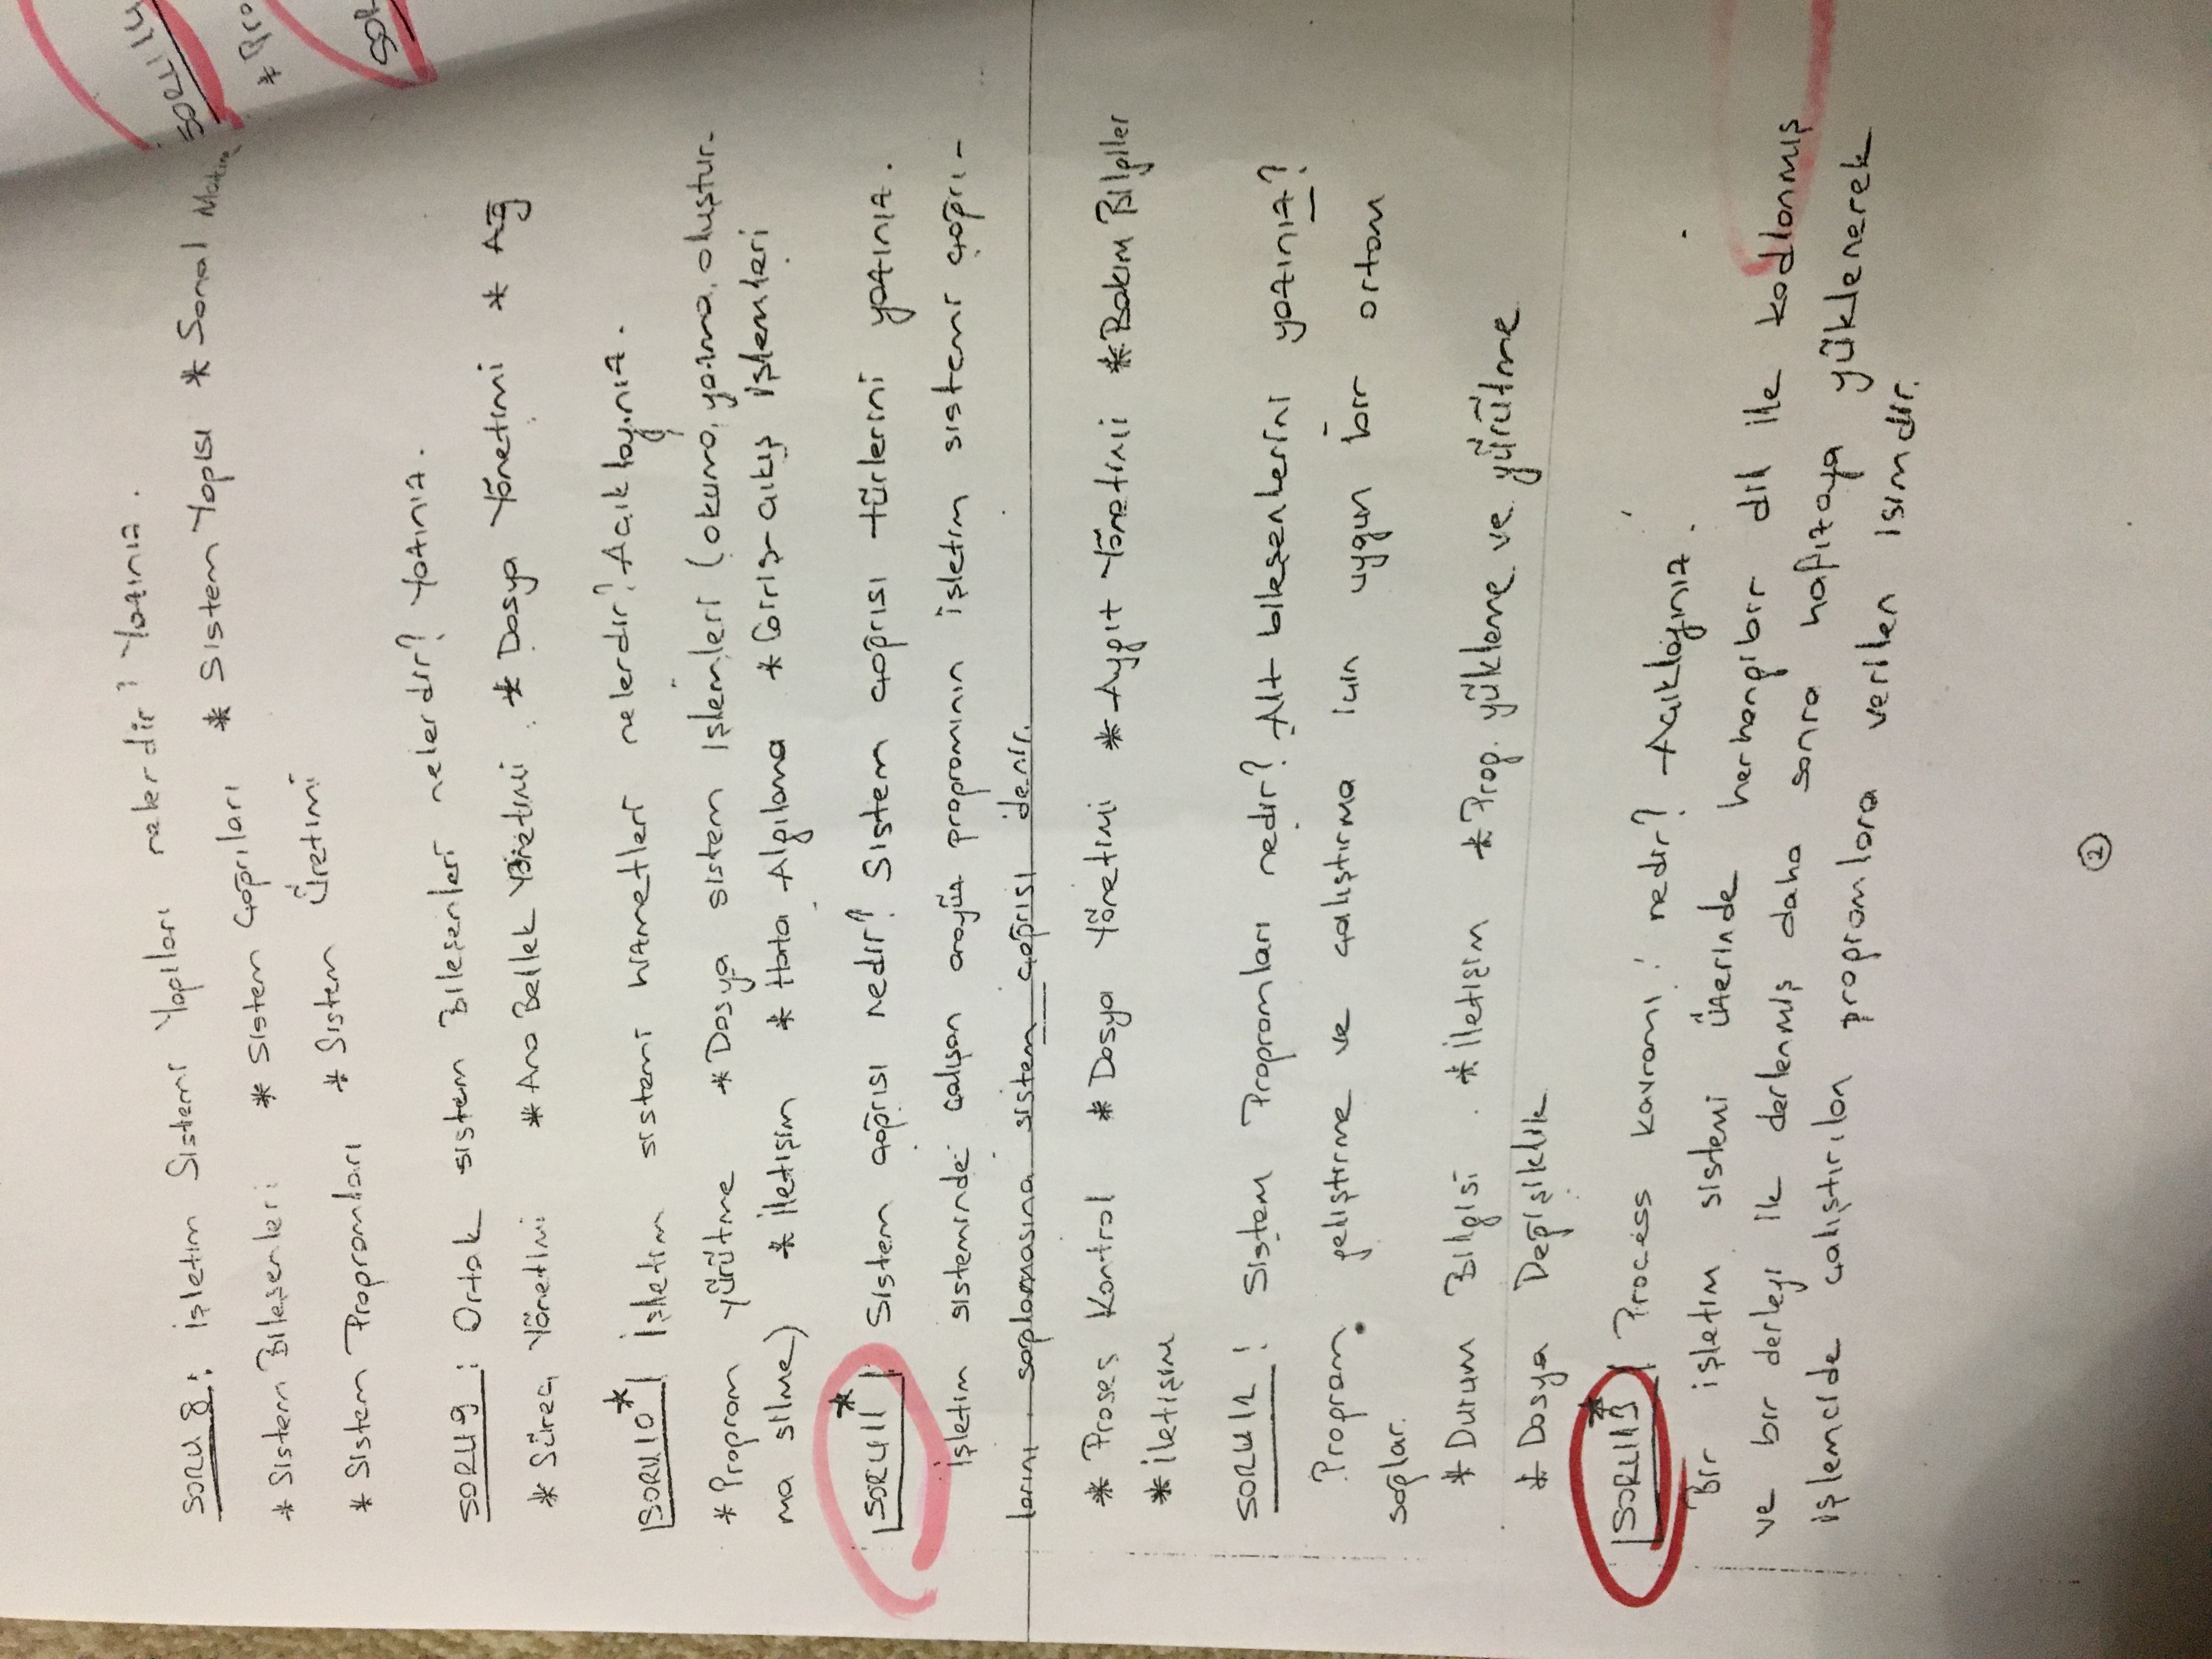 SORU 8 : İşletim Sistemi Yapıları nelerdir? Yazınız.
* Sistem Bileşenleri * Sistem Çağrıları * Sistem Yapısı * Sanal Makine
* Sistem Programları * Sistem Üretimi
SORU 9 : Ortak sistem Bileşenleri nelerdir? Yazınız.
* Süreç Yönetimi * Ana Bellek Yönetimi * Dosya Yönetimi * Ağ
SORU 10 * İşletim sistemi hizmetleri nelerdir? Açıklayınız.
* Program yürütme * Dosya sistem işlemleri (okuma, yazma, oluştur-
ma silme) * İletişim * Hata Algılama * Giriş-çıkış işlemleri
SORU 11 * Sistem çağrısı nedir? Sistem çağrısı türlerini yazınız.
İşletim sisteminde çalışan arayüz programının işletim sistemi çağrı-
larını sağlamasına sistem çağrısı denir.
* Proses Kontrol * Dosya Yönetimi * Aygıt Yönetimi * Bakım Bilgiler
* İletişim
SORU 12 : Sistem Programları nedir? Alt bileşenlerini yazınız?
Program geliştirme ve çalıştırma için uygun bir ortam
sağlar.
* Durum Bilgisi * İletişim * Prog. yükleme ve yürütme
* Dosya Değişiklik
SORU 13 * Process kavramı nedir? Açıklayınız.
Bir işletim sistemi üzerinde herhangibir dil ile kodlanmış
ve bir derleyi ile derlenmiş daha sonra hafızaya yüklenerek
işlemcide çalıştırılan programlara verilen isimdir.
2
SORU 14
* Pro
SOR